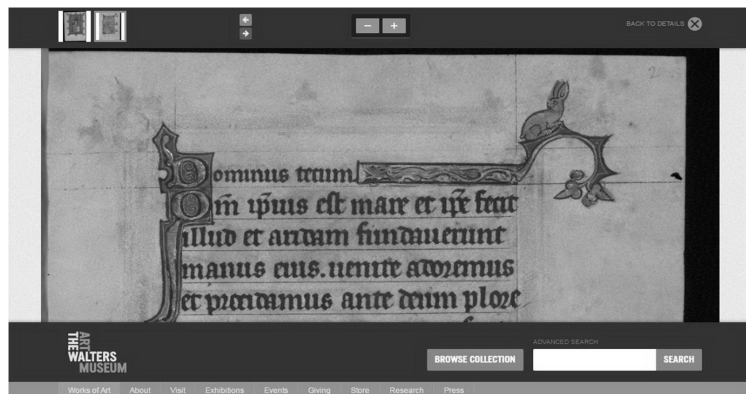 BACK TO DETAILS
2
Dominus tecum
Qm̄ ip̄ius est mare et ip̄e fecit
illud et aridam fundauerunt
manus eius. uenite adoremus
et procidamus ante deum plore
THE
ART
WALTERS
MUSEUM
BROWSE COLLECTION
ADVANCED SEARCH
SEARCH
Works of Art About Visit Exhibitions Events Giving Store Research Press